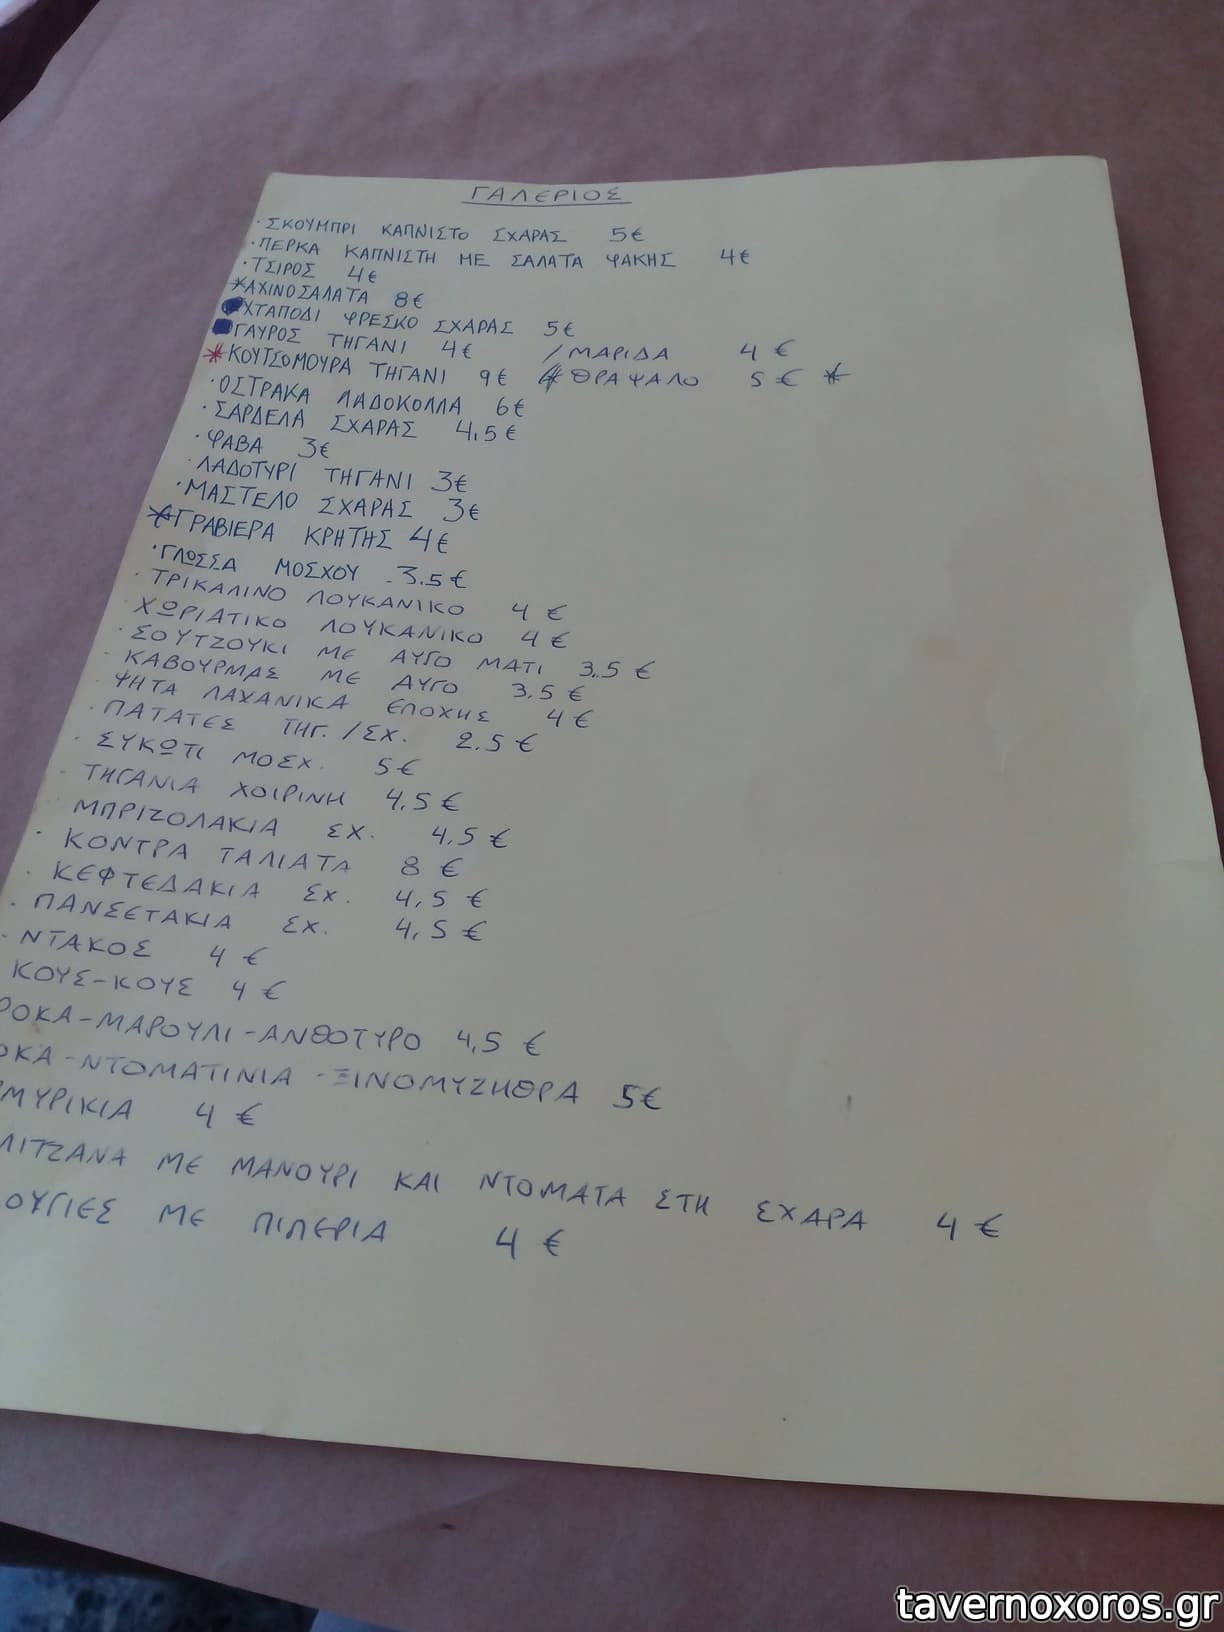 ΓΑΛΕΡΙΟΣ
· ΣΚΟΥΜΠΡΙ ΚΑΠΝΙΣΤΟ ΣΧΑΡΑΣ 5€
· ΠΕΡΚΑ ΚΑΠΝΙΣΤΗ ΜΕ ΣΑΛΑΤΑ ΦΑΚΗΣ 4€
· ΤΣΙΡΟΣ 4€
* ΑΧΙΝΟΣΑΛΑΤΑ 8€
ΧΤΑΠΟΔΙ ΦΡΕΣΚΟ ΣΧΑΡΑΣ 5€
ΓΑΥΡΟΣ ΤΗΓΑΝΙ 4€ / ΜΑΡΙΔΑ 4 €
* ΚΟΥΤΣΟΜΟΥΡΑ ΤΗΓΑΝΙ 9€ ΘΡΑΨΑΛΟ 5 € *
· ΟΣΤΡΑΚΑ ΛΑΔΟΚΟΛΛΑ 6€
· ΣΑΡΔΕΛΑ ΣΧΑΡΑΣ 4,5€
· ΦΑΒΑ 3€
· ΛΑΔΟΤΥΡΙ ΤΗΓΑΝΙ 3€
· ΜΑΣΤΕΛΟ ΣΧΑΡΑΣ 3€
* ΓΡΑΒΙΕΡΑ ΚΡΗΤΗΣ 4€
· ΓΛΩΣΣΑ ΜΟΣΧΟΥ 3.5€
· ΤΡΙΚΑΛΙΝΟ ΛΟΥΚΑΝΙΚΟ 4 €
ΧΩΡΙΑΤΙΚΟ ΛΟΥΚΑΝΙΚΟ 4 €
· ΣΟΥΤΖΟΥΚΙ ΜΕ ΑΥΓΟ ΜΑΤΙ 3.5 €
· ΚΑΒΟΥΡΜΑΣ ΜΕ ΑΥΓΟ 3.5 €
· ΨΗΤΑ ΛΑΧΑΝΙΚΑ ΕΠΟΧΗΣ 4 €
· ΠΑΤΑΤΕΣ ΤΗΓ. / ΣΧ. 2.5 €
· ΣΥΚΩΤΙ ΜΟΣΧ. 5€
· ΤΗΓΑΝΙΑ ΧΟΙΡΙΝΗ 4.5 €
ΜΠΡΙΖΟΛΑΚΙΑ ΣΧ. 4.5 €
· ΚΟΝΤΡΑ ΤΑΛΙΑΤΑ 8 €
· ΚΕΦΤΕΔΑΚΙΑ ΣΧ. 4,5 €
· ΠΑΝΣΕΤΑΚΙΑ ΣΧ. 4,5 €
· ΝΤΑΚΟΣ 4 €
ΚΟΥΣ-ΚΟΥΣ 4 €
ΡΟΚΑ-ΜΑΡΟΥΛΙ-ΑΝΘΟΤΥΡΟ 4,5 €
ΟΚΑ-ΝΤΟΜΑΤΙΝΙΑ-ΞΙΝΟΜΥΖΗΘΡΑ 5€
ΜΥΡΙΚΙΑ 4 €
ΛΙΤΖΑΝΑ ΜΕ ΜΑΝΟΥΡΙ ΚΑΙ ΝΤΟΜΑΤΑ ΣΤΗ ΣΧΑΡΑ 4 €
ΟΥΓΙΕΣ ΜΕ ΠΙΠΕΡΙΑ 4 €
tavernoxoros.gr